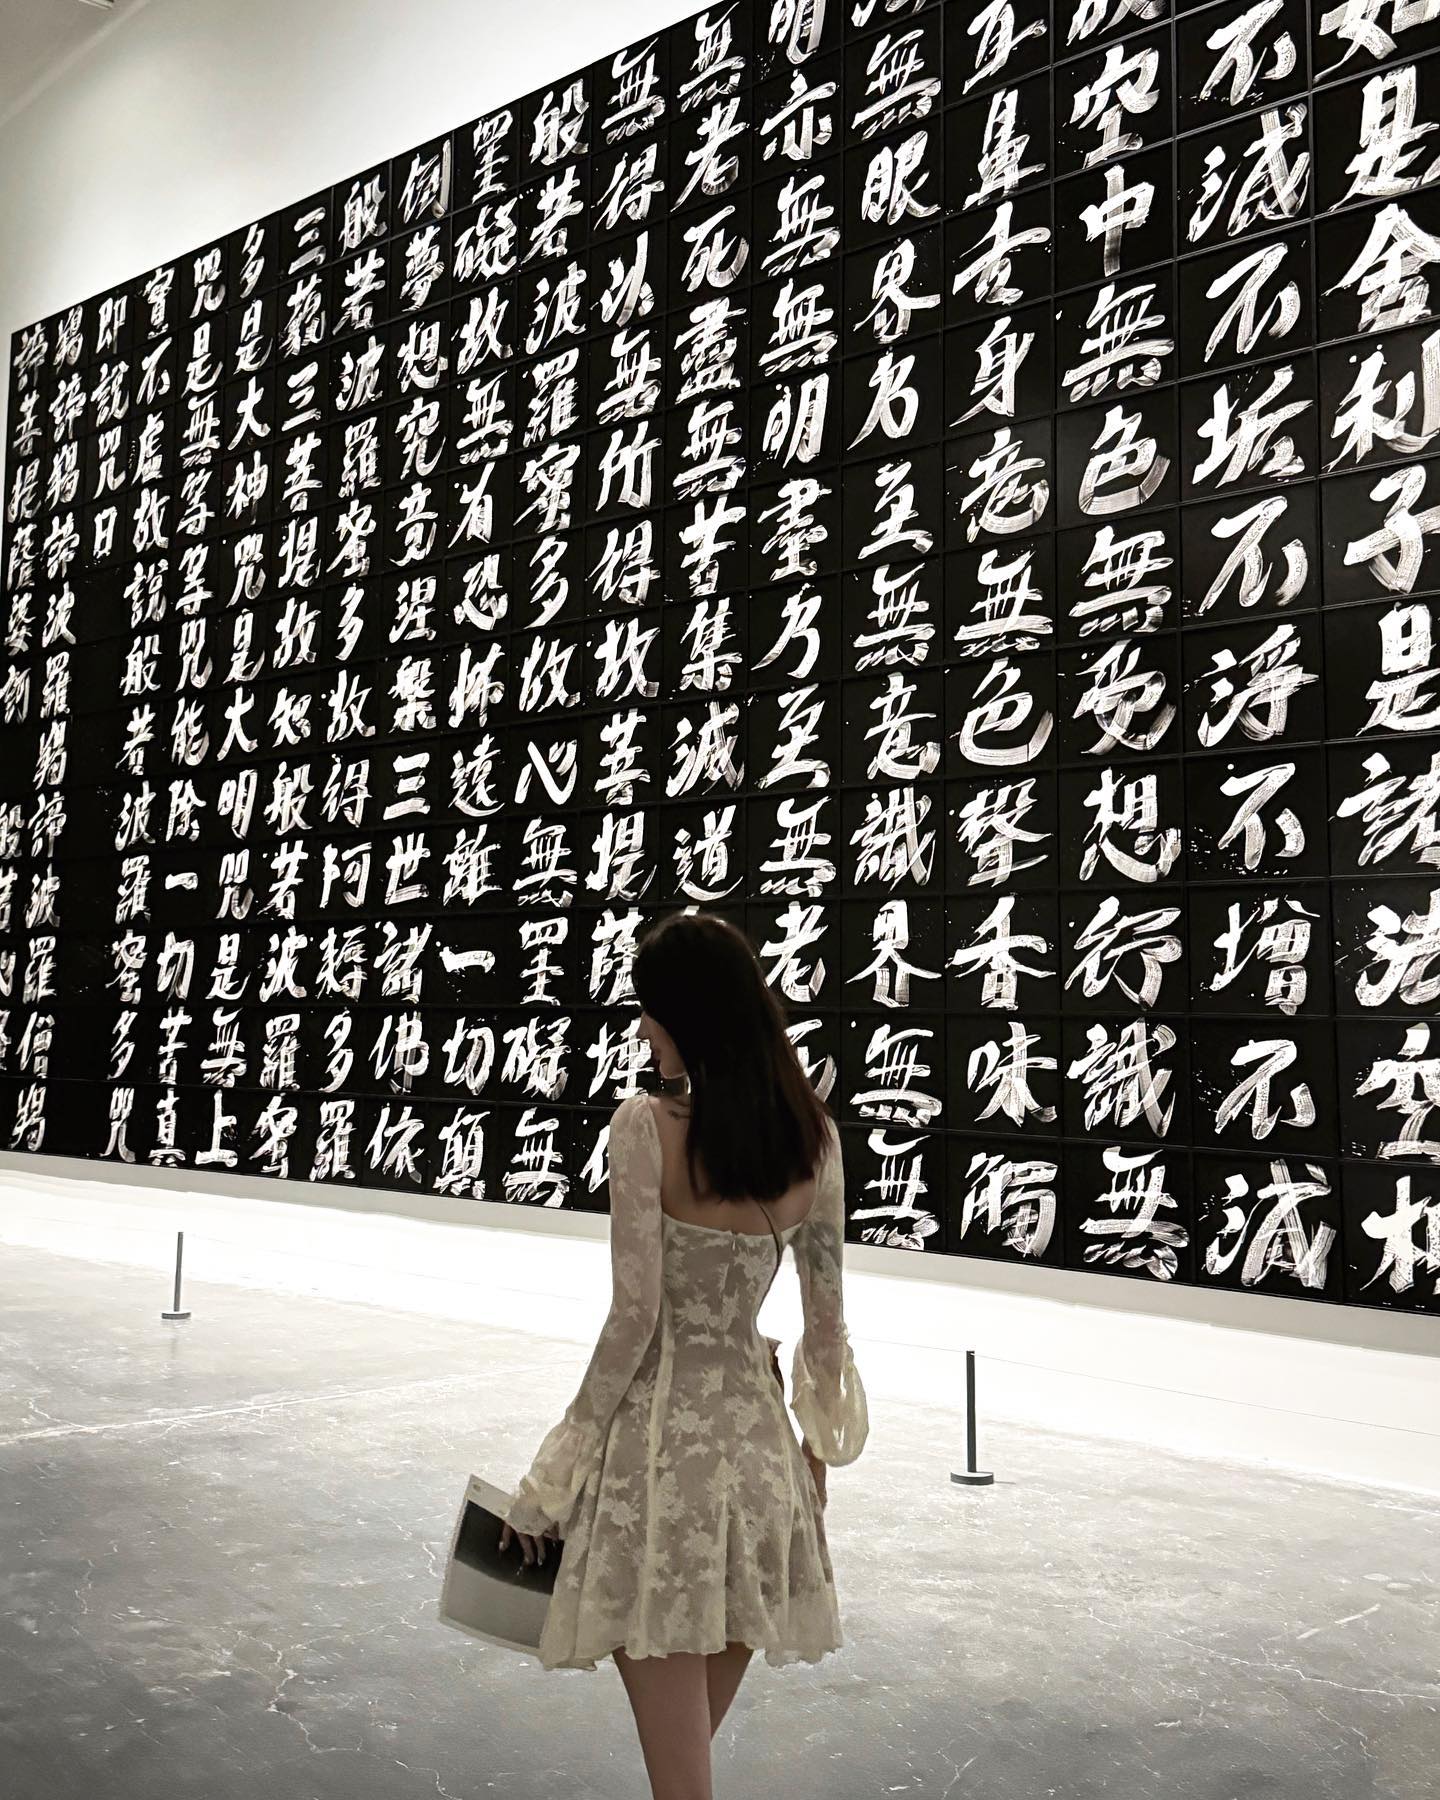 如是舍利子是諸法空相
不滅不垢不淨不增不減
故空中無色無受想行識無
耳鼻舌身意無色聲香味觸
無眼界乃至無意識界無無
明亦無無明盡乃至無老死
無老死盡無苦集滅道
無得以無所得故菩提薩埵
般若波羅蜜多故心無罣礙無
罣礙故無有恐怖遠離一切顛
倒夢想究竟涅槃三世諸佛依
般若波羅蜜多故得阿耨多羅
三藐三菩提故知般若波羅蜜
多是大神咒是大明咒是無上
咒是無等等咒能除一切苦真
實不虛故說般若波羅蜜多咒
即說咒曰
揭諦揭諦波羅揭諦波羅僧揭
諦菩提薩婆訶
般若心